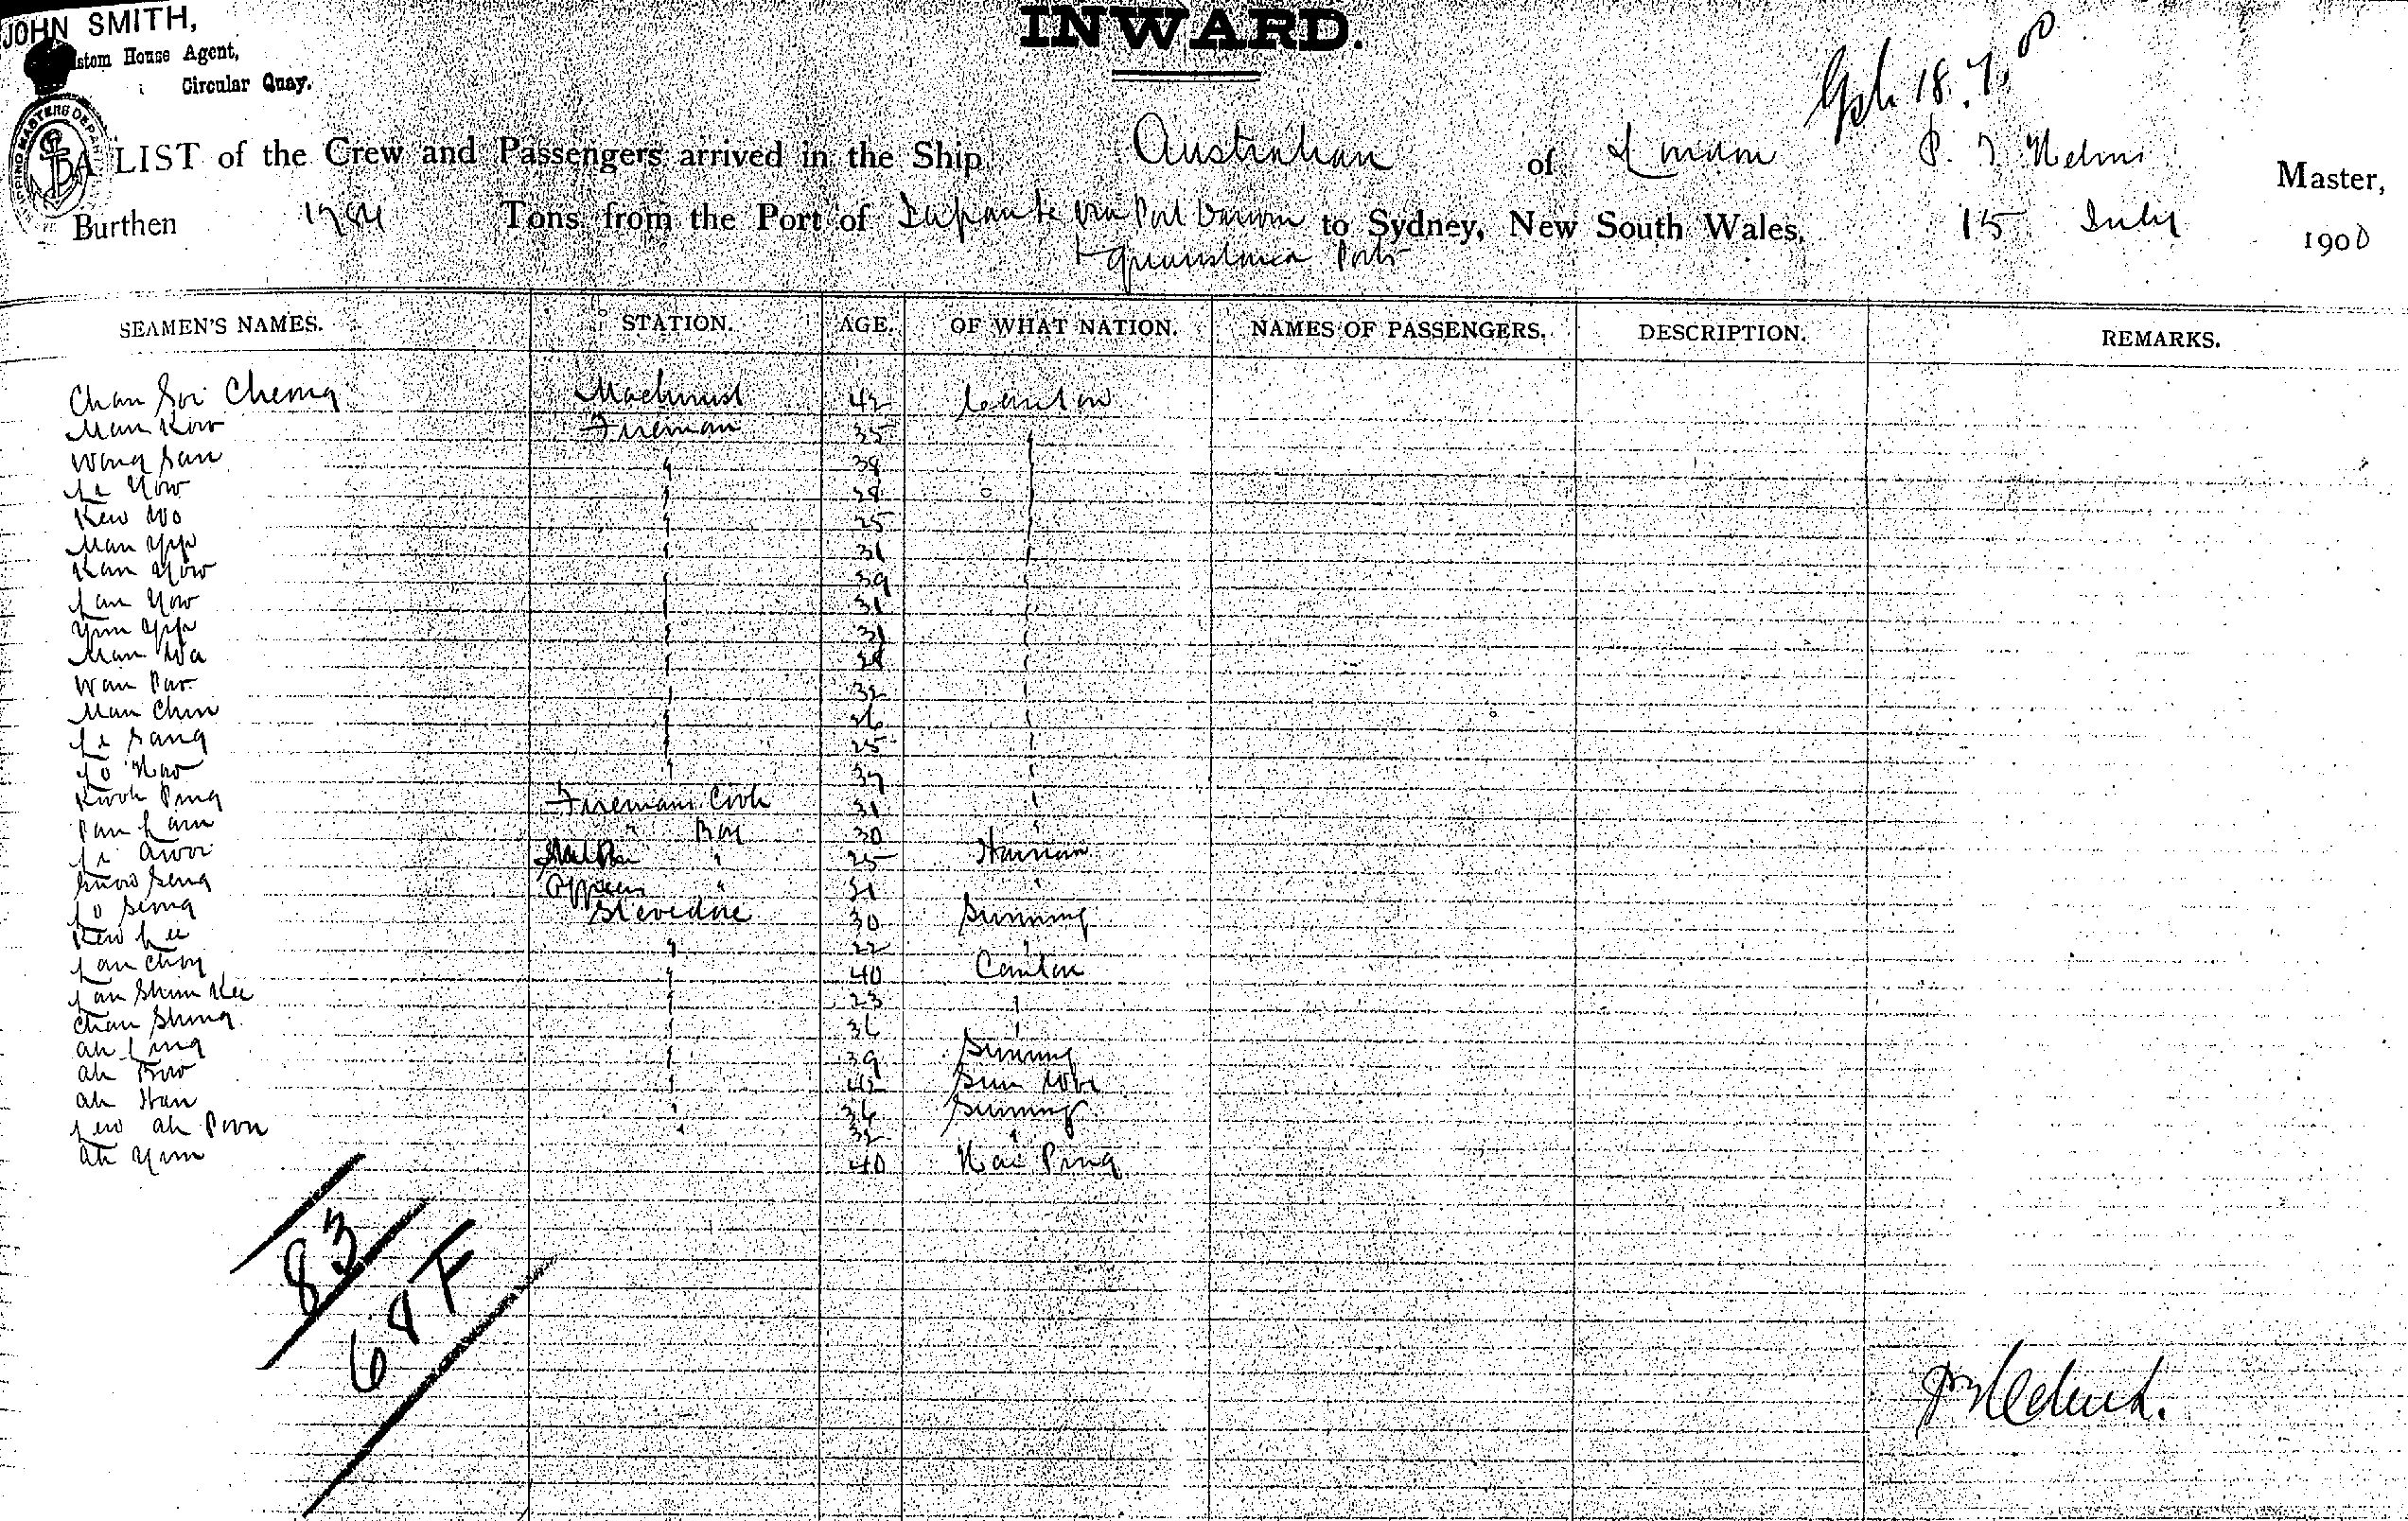 JOHN SMITH,
Custom House Agent,
Circular Quay.
INWARD.
18.7.00
A LIST of the Crew and Passengers arrived in the Ship Australian of London P. T. Helms Master,
Burthen 1784 Tons from the Port of Japan &c via Port Darwin to Sydney, New South Wales, 15 July 1900
+ Queensland Ports
SEAMEN'S NAMES. STATION. AGE. OF WHAT NATION. NAMES OF PASSENGERS. DESCRIPTION. REMARKS.
Chan Soi Cheong Machinist 42 Canton
Man Kow Fireman 35 "
Wong San " 38 "
Le Yow " 28 "
Kew Wo " 25 "
Man Yip " 31 "
Kan Yow " 39 "
Lan Yow " 31 "
Yim Yip " 31 "
Man Wa " 28 "
Wan Por " 32 "
Man Chin " 26 "
Le Sang " 25 "
Lo Kao " 37 "
Kwok Ping Firemans Cook 31 "
Pan Lam " Boy 30 "
Li Awoi " 25 Hainan
Snow Seng Officers " 31 "
Lo Seong Stevedore 30 Sunning
Kew Lee " 22 "
Lan Choy " 40 Canton
Lan Shun Kee " 23 "
Chan Shing " 36 "
Ah Ling " 39 Sunning
Ah Bow " 42 Sun Woi
Ah Han " 36 Sunning
Lew Ah Poon " 32 "
Ah Yim 40 Hai Ping
83
68 F